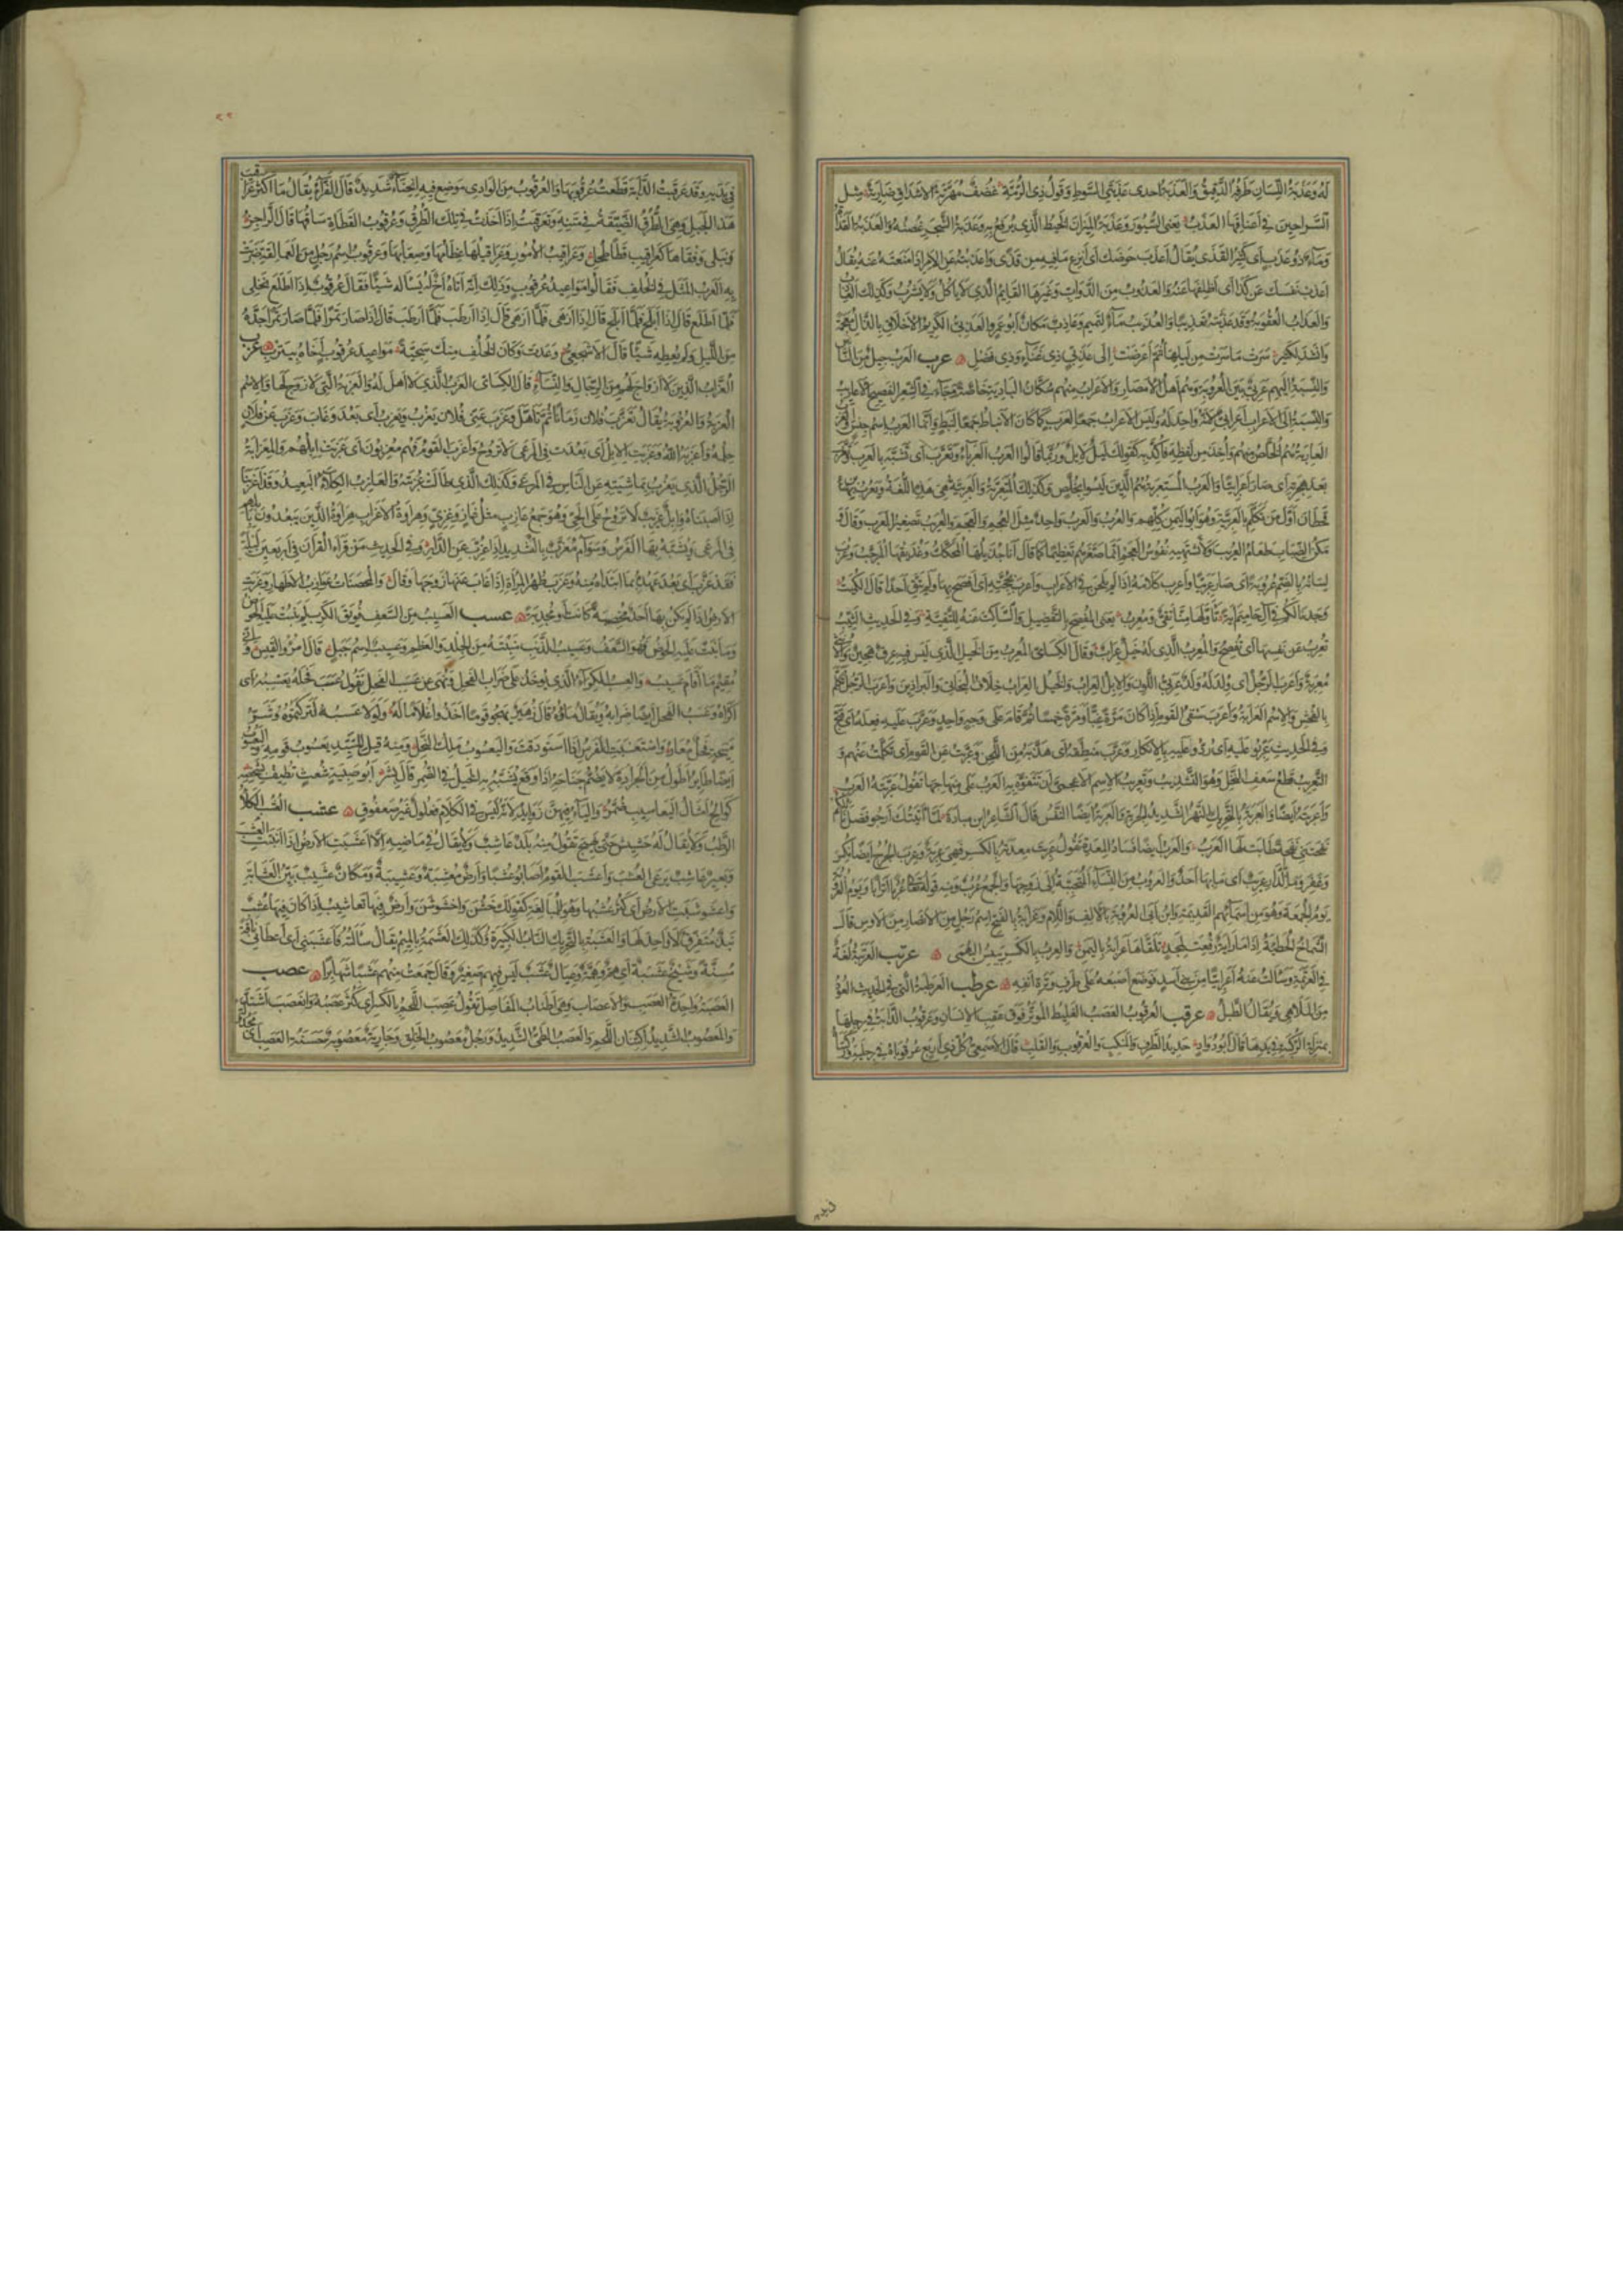 له وعذبة اللسان طرفه الدقيق والعذبة احدى عذبتي السوط وقول ذي الرمة غضف مهرتة الاشداق ضارية مثل
السراحين في اعناقها العذب يعني السيور وعذبة الميزان الخيط الذي يرفع به وعذبة الشجر غصنه والعذبة القذاة
وماء ذو عذب اي كثير القذى يقال اعذب حوضك اي انزع ما فيه من قذى واعذبته عن الامر اذا منعته عنه يقال
اعذب نفسك عن كذا اي اظلفها عنه والعذوب من الدواب وغيرها القايم الذي لا ياكل ولا يشرب وكذلك العاذب
والعذاب العقوبة وقد عذبته تعذيبا والعذيب ماء لتميم وعاذب مكان ابو عمرو العذبي الكريم الاخلاق بالذال معجمة
وانشد لكثير سرت ما سرت من ليلها ثم اعرضت الى عذبي ذي غناء وذي فضل عرب العرب جيل من الناس
والنسبة اليهم عربي بين العروبة وهم اهل الامصار والاعراب منهم سكان البادية خاصة وجاء في الشعر الفصيح الاعاريب
والنسبة الى الاعراب اعرابي لانه لا واحد له وليس الاعراب جمعا لعرب كما كان الانباط جمعا لنبط وانما العرب اسم جنس والعرب
العاربة هم الخلص منهم واخذ من لفظه فاكد به كقولك ليل لايل وربما قالوا العرب العرباء وتعرب اي تشبه بالعرب وتعرب
بعد هجرته اي صار اعرابيا والعرب المستعربة هم الذين ليسوا بخلص وكذلك المتعربة والعربية هي هذه اللغة ويعرب بن
قحطان اول من تكلم بالعربية وهو ابو اليمن كلهم والعرب والعرب واحد مثل العجم والعجم والعريب تصغير العرب وقال
مكن الضباب طعام العريب ولا تشتهيه نفوس العجم انما صغرهم تعظيما كما قال انا جذيلها المحكك وعذيقها المرجب وعرب
لسانه بالضم عروبة اي صار عربيا واعرب كلامه اذا لم يلحن في الاعراب واعرب بحجته اي افصح بها ولم يتق احدا قال الكميت
وجدنا لكم في آل حاميم آية تاولها منا تقي ومعرب يعني المفصح بالتفضيل والساكت عنه للتقية وفي الحديث الثيب
تعرب عن نفسها اي تفصح والمعرب الذي له خيل عراب وقال الكسائي المعرب من الخيل الذي ليس فيه عرق هجين والانثى
معربة واعرب الرجل اي ولد له ولد عربي اللون والابل العراب والخيل العراب خلاف البخاتي والبراذين واعرب الرجل تكلم
بالفحش والاسم العرابة واعرب سقي القوم اذا كان مرة غبا ومرة خمسا ثم قام على وجه واحد وعرب عليه فعله اي قبح
وفي الحديث عربوا عليه اي ردوا عليه بالانكار وعرب منطقه اي هذبه من اللحن وعربت عن القوم اي تكلمت عنهم و
التعريب قطع سعف النخل وهو التشذيب وتعريب الاسم الاعجمي ان تتفوه به العرب على منهاجها تقول عربته العرب
واعربته ايضا والعربة بالتحريك النهر الشديد الجرية والعربة ايضا النفس قال الشاعر ابن ميادة لما اتيتك ارجو فضل نائلكم
نفحتني نفحة طابت لها العرب والعرب ايضا فساد المعدة تقول عربت معدته بالكسر فهي عربة وعرب الجرح ايضا نكس
وغفر وما بالدار عريب اي ما بها احد والعروب من النساء المتحببة الى زوجها والجمع عرب ومنه قوله تعالى عربا اترابا ويوم العروبة
يوم الجمعة وهو من اسمائهم القديمة وابن ابي العروبة بالالف واللام وعرابة بالفتح اسم رجل من الانصار من الاوس قال
الشماخ للحطيئة اذا ما راية رفعت لمجد تلقاها عرابة باليمين والعرب بالكسر يبيس البهمى عرتب العرتبة لغة
في العرتمة وسالت عنه اعرابيا من بني اسد فوضع اصبعه على طرف وترة انفه عرطب العرطبة التي في الحديث العود
من الملاهي ويقال الطبل عرقب العرقوب العصب الغليظ الموتر فوق عقب الانسان وعرقوب الدابة في رجلها
بمنزلة الركبة في يدها قال ابو دواد حديد الطرف والمنكب والعرقوب والقلب قال الاصمعي كل ذي اربع عرقوباه في رجليه وركبتاه
في يديه وقد عرقبت الدابة قطعت عرقوبها والعرقوب من الوادي موضع فيه انحناء شديد قال الفراء يقال ما اكثر عراقيب
هذا الجبل وهي الطرق الضيقة في متنه وتعرقبت اذا اخذت في تلك الطرق وعرقوب القطاة ساقها قال الراجز
ونبلي وفقاها كعراقيب قطا طحل وعراقيب الامور وعراقيلها عظامها وصعابها وعرقوب اسم رجل من العمالقة ضربت
به العرب المثل في الخلف فقالوا مواعيد عرقوب وذلك انه اتاه اخ له يساله شيئا فقال عرقوب اذا اطلع نخلي
فلما اطلع قال اذا ابلح فلما ابلح قال اذا ازهى فلما ازهى قال اذا ارطب فلما ارطب قال اذا صار تمرا فلما صار تمرا جذه
من الليل ولم يعطه شيئا قال الاشجعي وعدت وكان الخلف منك سجية مواعيد عرقوب اخاه بيترب عزب
العزاب الذين لا ازواج لهم من الرجال والنساء قال الكسائي العزب الذي لا اهل له والعزبة التي لا زوج لها والاسم
العزبة والعزوبة يقال تعزب فلان زمانا ثم تاهل وعزب عني فلان يعزب ويعزب اي بعد وغاب وعزب عن فلان
حلمه واعزبه الله وعزبت الابل اي بعدت في المرعى لا تروح واعزب القوم فهم معزبون اي عزبت ابلهم والمعزابة
الرجل الذي يعزب بماشيته عن الناس في المرعى وكذلك الذي طالت عزبته والعازب الكلأ البعيد وقد اعزبنا
اذا اصبناه وابل عزيب لا تروح على الحي وهو جمع عازب مثل غاز وغزي وهراوة الاعزاب هراوة الذين يبعدون بابلهم
في المرعى ويشبه بها الفرس وسوام معزب بالتشديد اذا عزب عن الدار وفي الحديث من قرأ القرآن في اربعين ليلة
فقد عزب اي بعد عهده بما ابتدأ منه وعزب طهر المرأة اذا غاب عنها زوجها وقال والمحصنات عوازب الاطهار وعزبت
الارض اذا لم يكن بها احد مخصبة كانت او مجدبة عسب العسيب من السعف فويق الكرب لم ينبت عليه الخوص
وما نبت عليه الخوص فهو السعف وعسيب الذنب منبته من الجلد والعظم وعسيب اسم جبل قال امرؤ القيس واني
مقيم ما اقام عسيب والعسب الكراء الذي يوخذ على ضراب الفحل ونهي عن عسب الفحل تقول عسب فحله يعسبه اي
اكراه وعسب الفحل ايضا ضرابه ويقال ماؤه قال زهير يهجو قوما اخذوا غلاما له ولولا عسبه لتركتموه وشر
منيحة فحل معار واستعسبت الفرس اذا استودقت واليعسوب ملك النحل ومنه قيل للسيد يعسوب قومه واليعسوب
ايضا طاير اطول من الجرادة لا يضم جناحه اذا وقع يشبه به الخيل في الضمر قال بشر ابو صبية شعث تطيف بشخصه
كوالح امثال اليعاسيب ضمر والياء فيهن زوايد لانه ليس في الكلام فعلول غير صعفوق عشب العشب الكلأ
الرطب ولا يقال له حشيش حتى يهيج تقول منه بلد عاشب ولا يقال في ماضيه الا اعشبت الارض اذا انبتت العشب
وبعير عاشب يرعى العشب واعشب القوم اصابوا عشبا وارض معشبة وعشيبة ومكان عشيب بين العشابة
واعشوشبت الارض اي كثر عشبها وهو للمبالغة كقولك خشن واخشوشن وارض فيها تعاشيب اذا كان فيها عشب
نبذ متفرق لا واحد لها والعشبة بالتحريك الناب الكبيرة وكذلك العشمة بالميم يقال سألته فاعشبني اي اعطاني ناقة
مسنة وشيخ عشبة اي هم وهمة وعيال عشب ليس فيهم صغير وقال جمعت منهم عشبا شهابرا عصب
العصبة واحدة العصب والاعصاب وهي اطناب المفاصل تقول عصب اللحم بالكسر اي كثر عصبه وانعصب اشتد
والمعصوب الشديد اكتناز اللحم والعصب الطي الشديد ورجل معصوب الخلق وجارية معصوبة حسنة العصب اي مجدولة